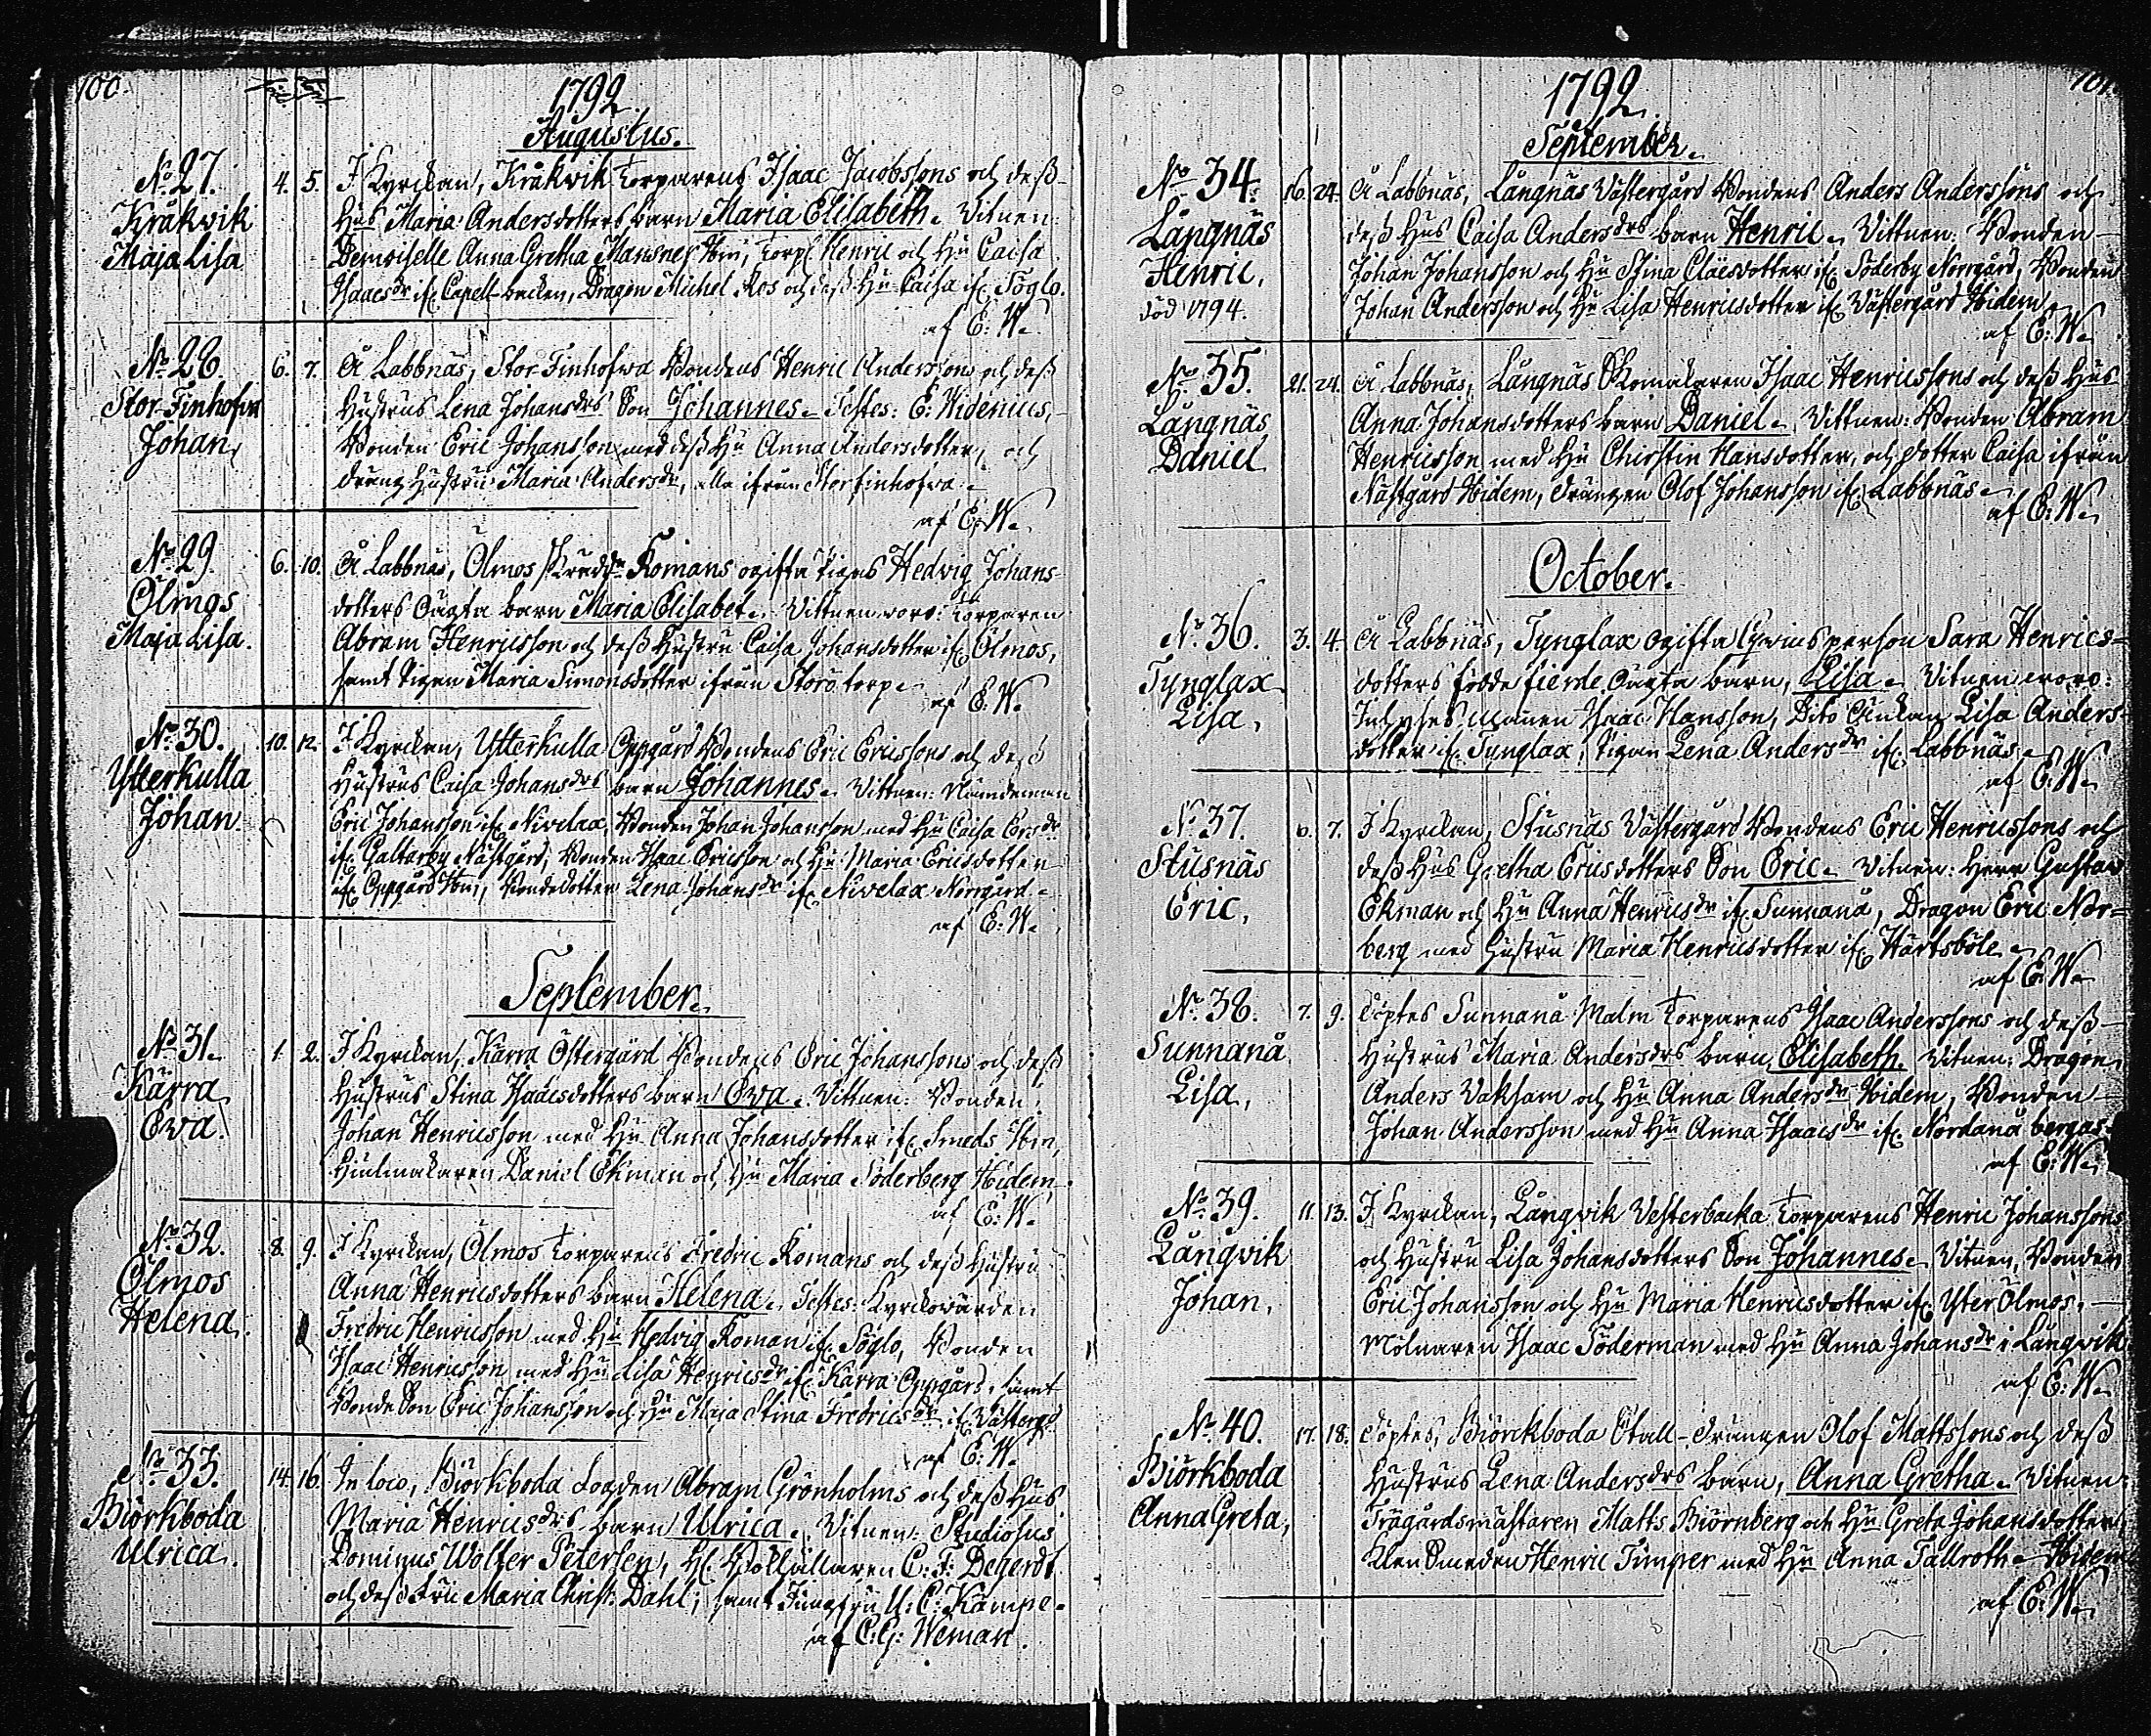 100.
1792.
Augustus.
No 27.
Kråkvik
Maja Lisa
4. 5. I Kyrckan, Kråkvik Torparens Isaac Jacobssons och dess
Hus Maria Andersdotters barn Maria Elisabeth. Vitnen:
Demoiselle Anna Gretha Mansner, Torp. Henric och Hu Caisa
Isaacsdr ifr. Capell-backen, Dragon Michel Ros och dess Hu Caisa ifr. Söglo.
af E: W.
No 28.
Stor Finhofva
Johan,
6. 7. Å Labbnäs, Stor Finhofva Bondens Henric Anderssons och dess
Hustrus Lena Johansdrs Son Johannes. Testes: E: Widenius,
Bonden Eric Johansson med dess Hu Anna Andersdotter, och
dräng Hustru Maria Andersdr, alla ifrån Storfinhofva.
af E: W.
No 29.
Ölmos
Maja Lisa.
6. 10. Å Labbnäs, Ölmos Romans ogifta pigas Hedvig Johans-
dotters Oägta barn Maria Elisabet. Vittnen voro: Torparen
Abram Henricsson och dess Hustru Caisa Johansdotter ifr. Ölmos,
samt Pigan Maria Simonsdotter ifrån Storö torp.
af E: W.
No 30.
Ytterkulla
Johan.
10. 12. I Kyrckan, Ytterkulla Oppgård Bondens Eric Ericssons och dess
Hustrus Caisa Johansdrs barn Johannes. Vittnen: Nämndeman
Eric Johansson ifr. Nivelax, Bonden Johan Johansson med Hu Caisa Ersdr
ifr. Galtarby Nästgård, Bonden Isaac Ericsson och Hu Maria Ericsdotter
ifr. Oppgård Ibm, Bondedotter Lena Johansdr ifr. Nivelax Norrgård.
af E: W.
September.
No 31.
Kärra
Eva.
1. 2. I Kyrckan, Kärra Östergård Bondens Eric Johanssons och dess
Hustrus Stina Isaacsdotters barn Eva. Vittnen: Bonden
Johan Henricsson med Hu Anna Johansdotter ifr. Smeds Ibm,
Hiulmakaren Daniel Ekman och Hu Maria Söderberg Ibidem.
af E: W.
No 32.
Ölmos
Helena.
8. 9. I Kyrckan, Ölmos Torparens Fredric Romans och dess Hustru
Anna Henricsdotters barn Helena. Testes: Kyrckovärden
Fredric Henricsson med Hu Hedvig Roman ifr. Söglo, Bonden
Isaac Henricsson med Hu Lisa Henricsdr ifr. Kärra Oppgård, samt
Bonde Son Eric Johansson och Hu Maja Stina Fredricsdr ifr. Västergd.
af E: W.
No 33.
Biörkboda
Ulrica.
14. 16. In loco, Biörkboda Logden Abram Grönholms och dess Hus
Maria Henricsdrs barn Ulrica. Vitnen: Studiosus
Dominus Wolter Petersen, Hl. Bokhållaren C: F: Degerdt
och dess Fru Maria Christ: Dahl; samt Jungfru U: C: Kämpe.
af C: G: Weman.
101.
1792.
September.
No 34.
Långnäs
Henric,
död 1794.
16. 24. Å Labbnäs, Långnäs Västergård Bondens Anders Anderssons och
dess Hus Caisa Andersdrs barn Henric. Vittnen: Bonden
Johan Johansson och Hu Stina Claesdotter ifr. Söderby Norrgård, Bonden
Johan Andersson och Hu Lisa Henricsdotter ifr. Västergård Ibidem.
af E: W.
No 35.
Långnäs
Daniel
21. 24. Å Labbnäs, Långnäs Skomakaren Isaac Henricssons och dess Hus
Anna Johansdotters barn Daniel. Vittnen: Bonden Abram
Henricsson med Hu Chirstin Hansdotter, och dotter Caisa ifrån
Nästgård Ibidem, Drängen Olof Johansson ifr. Labbnäs.
af E: W.
October.
No 36.
Tynglax
Lisa,
3. 4. Å Labbnäs, Tynglax ogifta Qvins person Sara Henrics-
dotters födde fierde Oägta barn, Lisa. Vitnen voro:
Inhyses mannen Isaac Hansson, Dito Enkan Lisa Anders-
dotter ifr. Tynglax, Pigan Lena Andersdr ifr. Labbnäs.
af E: W.
No 37.
Stusnäs
Eric,
6. 7. I Kyrckan, Stusnäs Västergård Bondens Eric Henricssons och
dess Hus Gretha Ericsdotters Son Eric. Vitnen: Herr Gustav
Ekman och Hu Anna Henricsdr ifr. Sunnanå, Dragon Eric Nor-
berg med Hustru Maria Henricsdotter ifr. Härtsböle.
af E: W.
No 38.
Sunnanå
Lisa,
7. 9. Döptes Sunnanå Malm Torparens Isaac Anderssons och dess
Hustrus Maria Andersdrs barn Elisabeth. Vitnen: Dragon
Anders Vaksam och Hu Anna Andersdr Ibidem, Bonden
Johan Andersson med Hu Anna Isaacsdr ifr. Nordanå bergas.
af E: W.
No 39.
Långvik
Johan,
11. 13. I Kyrckan, Långvik Vesterbacka Torparens Henric Johanssons
och Hustru Lisa Johansdotters Son Johannes. Vitnen, Bonden
Eric Johansson och Hu Maria Henricsdotter ifr. Yter Ölmos,
Mölnaren Isaac Söderman med Hu Anna Johansdr i Långvik.
af E: W.
No 40.
Biörkboda
Anna Greta,
17. 18. Döptes, Biörckboda Stall-Drängen Olof Mattssons och dess
Hustrus Lena Andersdrs barn, Anna Gretha. Vitnen:
Trägårdsmästaren Matts Biörnberg och Hu Greta Johansdotter,
Klen Smeden Henric Timper med Hu Anna Tallroth. Ibidem
af E: W.